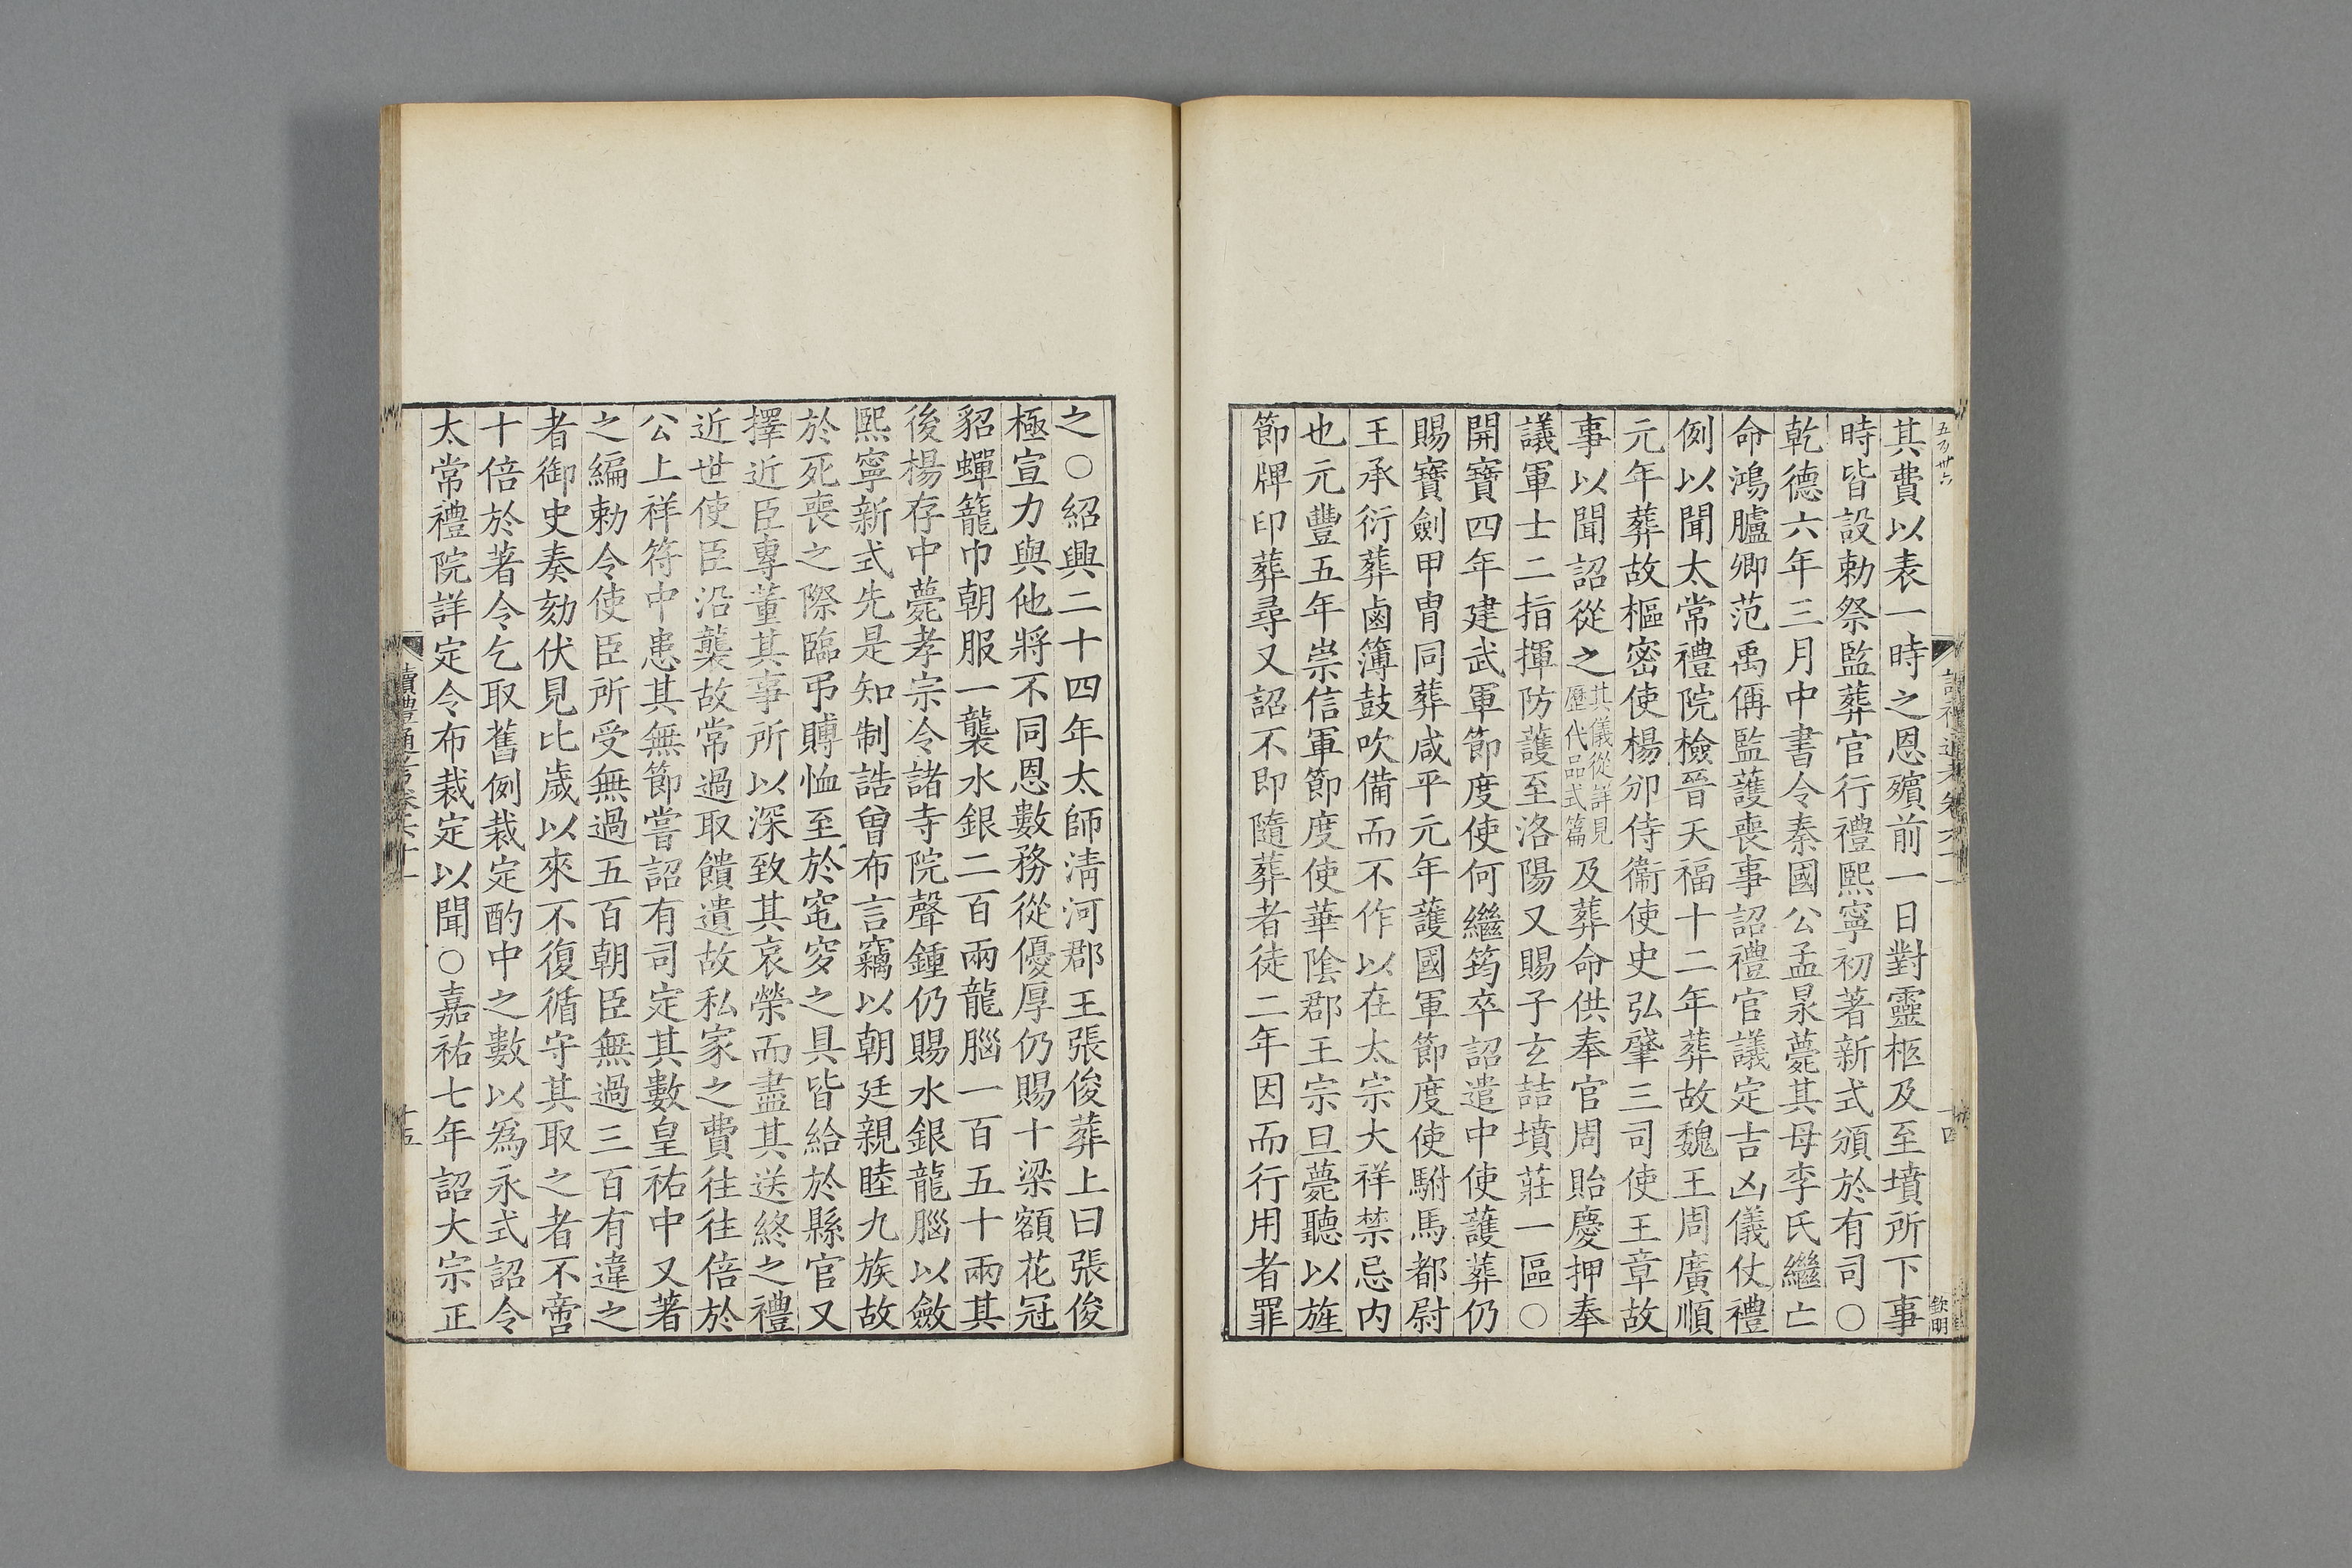 其費以表一時之恩殯前一日對靈柩及至墳所下事
時皆設勅祭監葬官行禮熙寧初著新式頒於有司○
乾德六年三月中書令秦國公孟昶薨其母李氏繼亡
命鴻臚卿范禹偁監護喪事詔禮官議定吉凶儀仗禮
例以聞太常禮院檢晉天福十二年葬故魏王周廣順
元年葬故樞密使楊邠侍衞使史弘肇三司使王章故
事以聞詔從之其儀從詳見歷代品式篇及葬命供奉官周貽慶押奉
議軍士二指揮防護至洛陽又賜子玄喆墳莊一區○
開寶四年建武軍節度使何繼筠卒詔遣中使護葬仍
賜寶劍甲冑同葬咸平元年護國軍節度使駙馬都尉
王承衍葬鹵簿鼓吹備而不作以在太宗大祥禁忌内
也元豐五年崇信軍節度使華陰郡王宗旦薨聽以旌
節牌印葬尋又詔不即隨葬者徒二年因而行用者罪
之○紹興二十四年太師淸河郡王張俊葬上曰張俊
極宣力與他將不同恩數務從優厚仍賜十梁額花冠
貂蟬籠巾朝服一襲水銀二百兩龍腦一百五十兩其
後楊存中薨孝宗令諸寺院聲鍾仍賜水銀龍腦以斂
熙寧新式先是知制誥曾布言竊以朝廷親睦九族故
於死喪之際臨弔賻恤至於窀穸之具皆給於縣官又
擇近臣專董其事所以深致其哀榮而盡其送終之禮
近世使臣沿襲故常過取饋遺故私家之費往往倍於
公上祥符中患其無節嘗詔有司定其數皇祐中又著
之編勅令使臣所受無過五百朝臣無過三百有違之
者御史奏劾伏見比歲以來不復循守其取之者不啻
十倍於著令乞取舊例裁定酌中之數以爲永式詔令
太常禮院詳定令布裁定以聞○嘉祐七年詔大宗正
讀禮通考卷六十一
十五